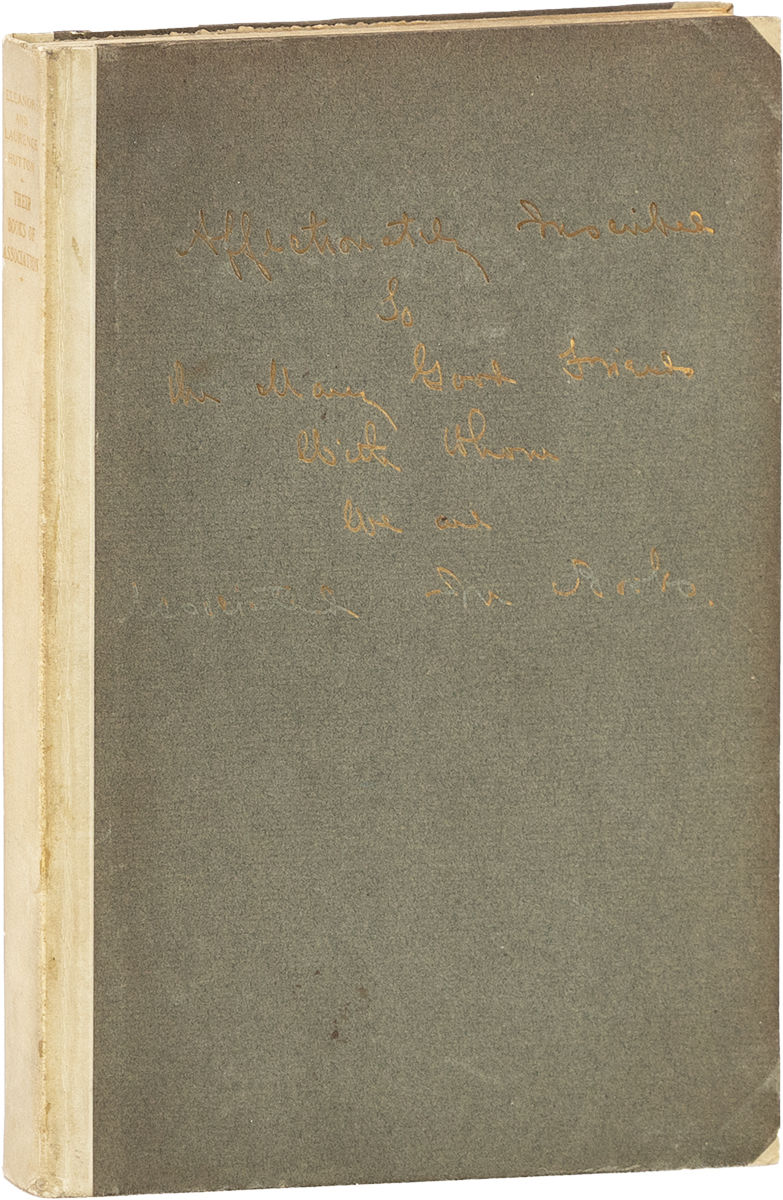 ELEANOR
AND
LAURENCE
HUTTON
THEIR
BOOKS OF
ASSOCIATION
Affectionately Inscribed
To
the Many Good Friends
With Whom
We are
Associated In Books.